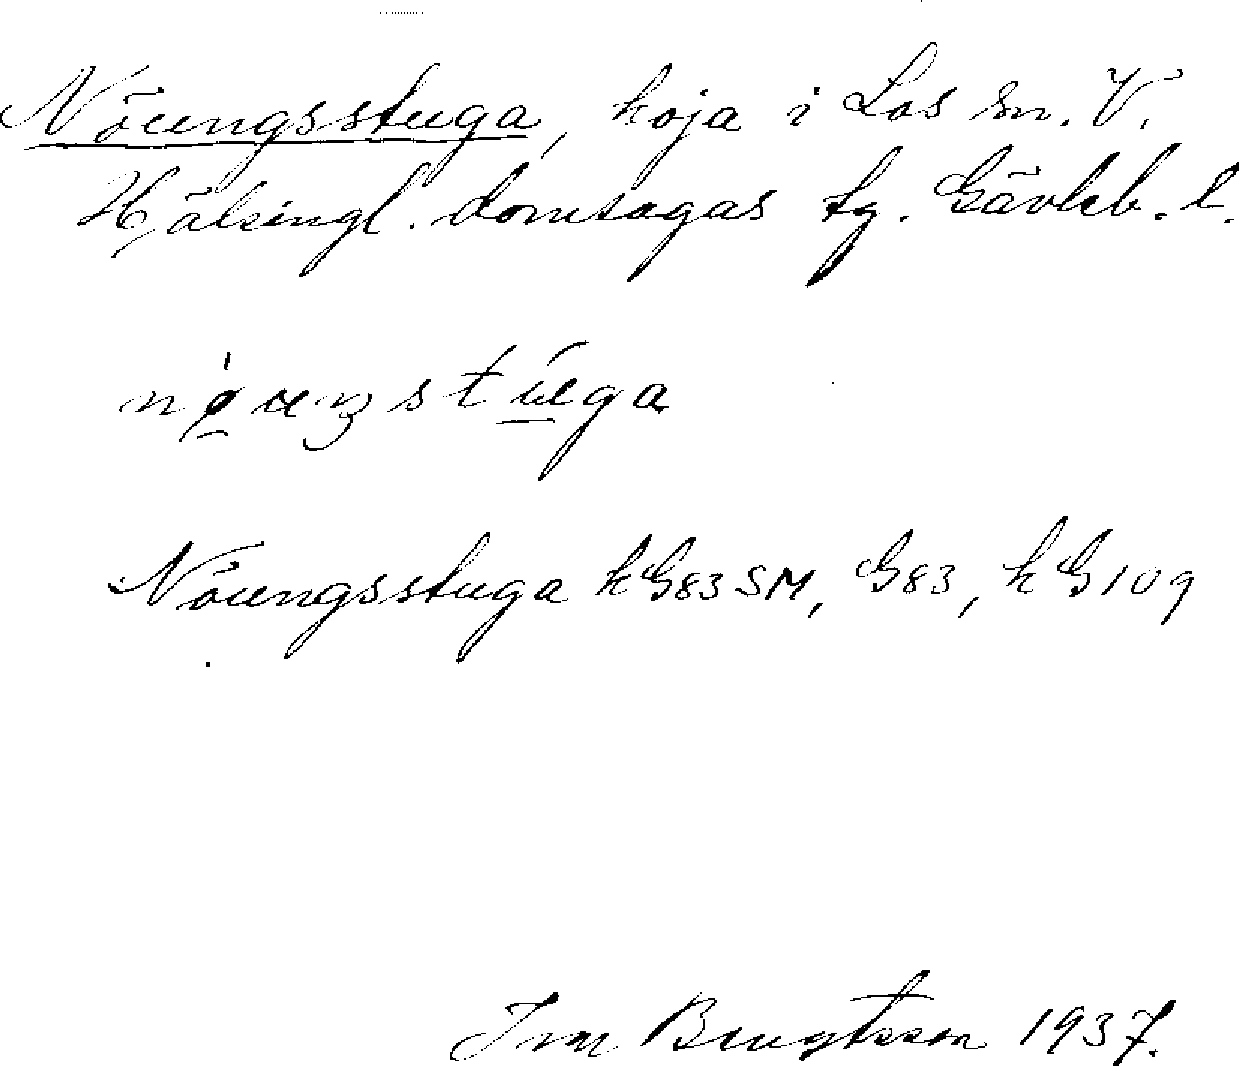 Nöungsstuga, koja i Los sn. V.
Hälsingl. domsagas tg. Gävleb. l.
Nöungsstuga kG83SM, G83, kG109
Ivan Bengtsson 1937.